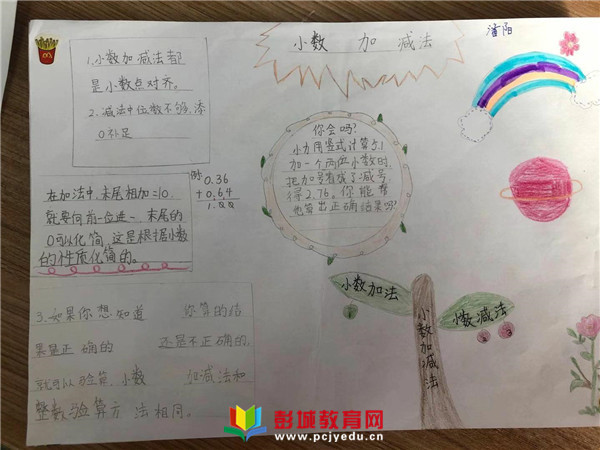 小数 加 减法
潘阳
1.小数加减法都
是小数点对齐。
2.减法中位数不够,添
0补足
在加法中,末尾相加=10,
就要向前一位进一,末尾的
0可以化简,这是根据小数
的性质化简的。
例:
0.36
+0.64
1.00
你会吗?
小力用竖式计算5.1
加一个两位小数时,
把加号看成了减号
得2.76。你能帮
他算出正确结果吗?
3.如果你想知道 你算的结
果是正确的 还是不正确的,
就可以验算,小数 加减法和
整数验算方法相同。
小数加法
1
小数减法
小数加减法
彭城教育网
www.pcjyedu.cn